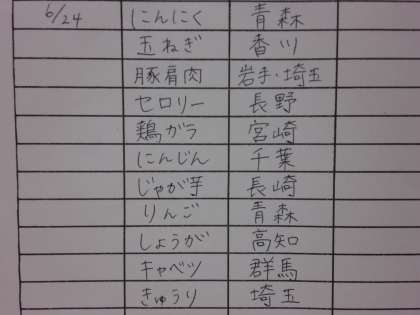 6/24 にんにく 青森
玉ねぎ 香川
豚肩肉 岩手・埼玉
セロリー 長野
鶏ガラ 宮崎
にんじん 千葉
じゃが芋 長崎
りんご 青森
しょうが 高知
キャベツ 群馬
きゅうり 埼玉